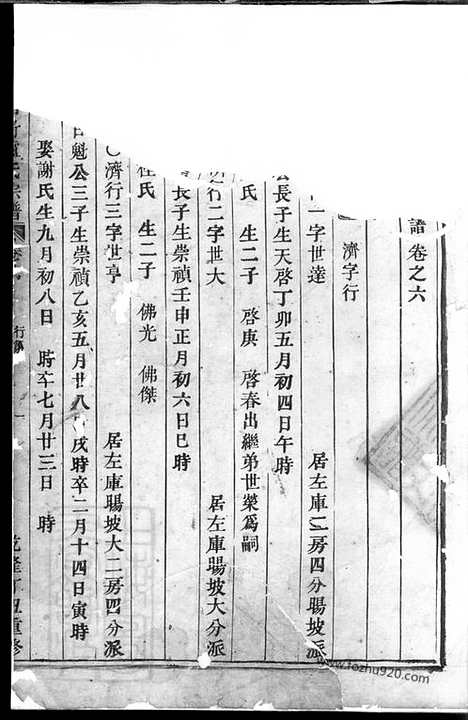 譜卷之六
濟字行
一字世達 居左庫二房四分暘坡派
公長子生天啓丁卯五月初四日午時
氏 生二子 啓庚 啓春出繼弟世榮爲嗣
行二字世大 居左庫暘坡大分派
長子生崇禎壬申正月初六日巳時
杜氏 生二子 佛光 佛傑
濟行三字世亨 居左庫暘坡大二房四分派
魁公三子生崇禎乙亥五月廿八 戌時卒二月十四日寅時
娶謝氏生九月初八日 時卒七月廿三日 時
氏宗譜 行 一 乾隆丁丑重修
www.fozhu920.com